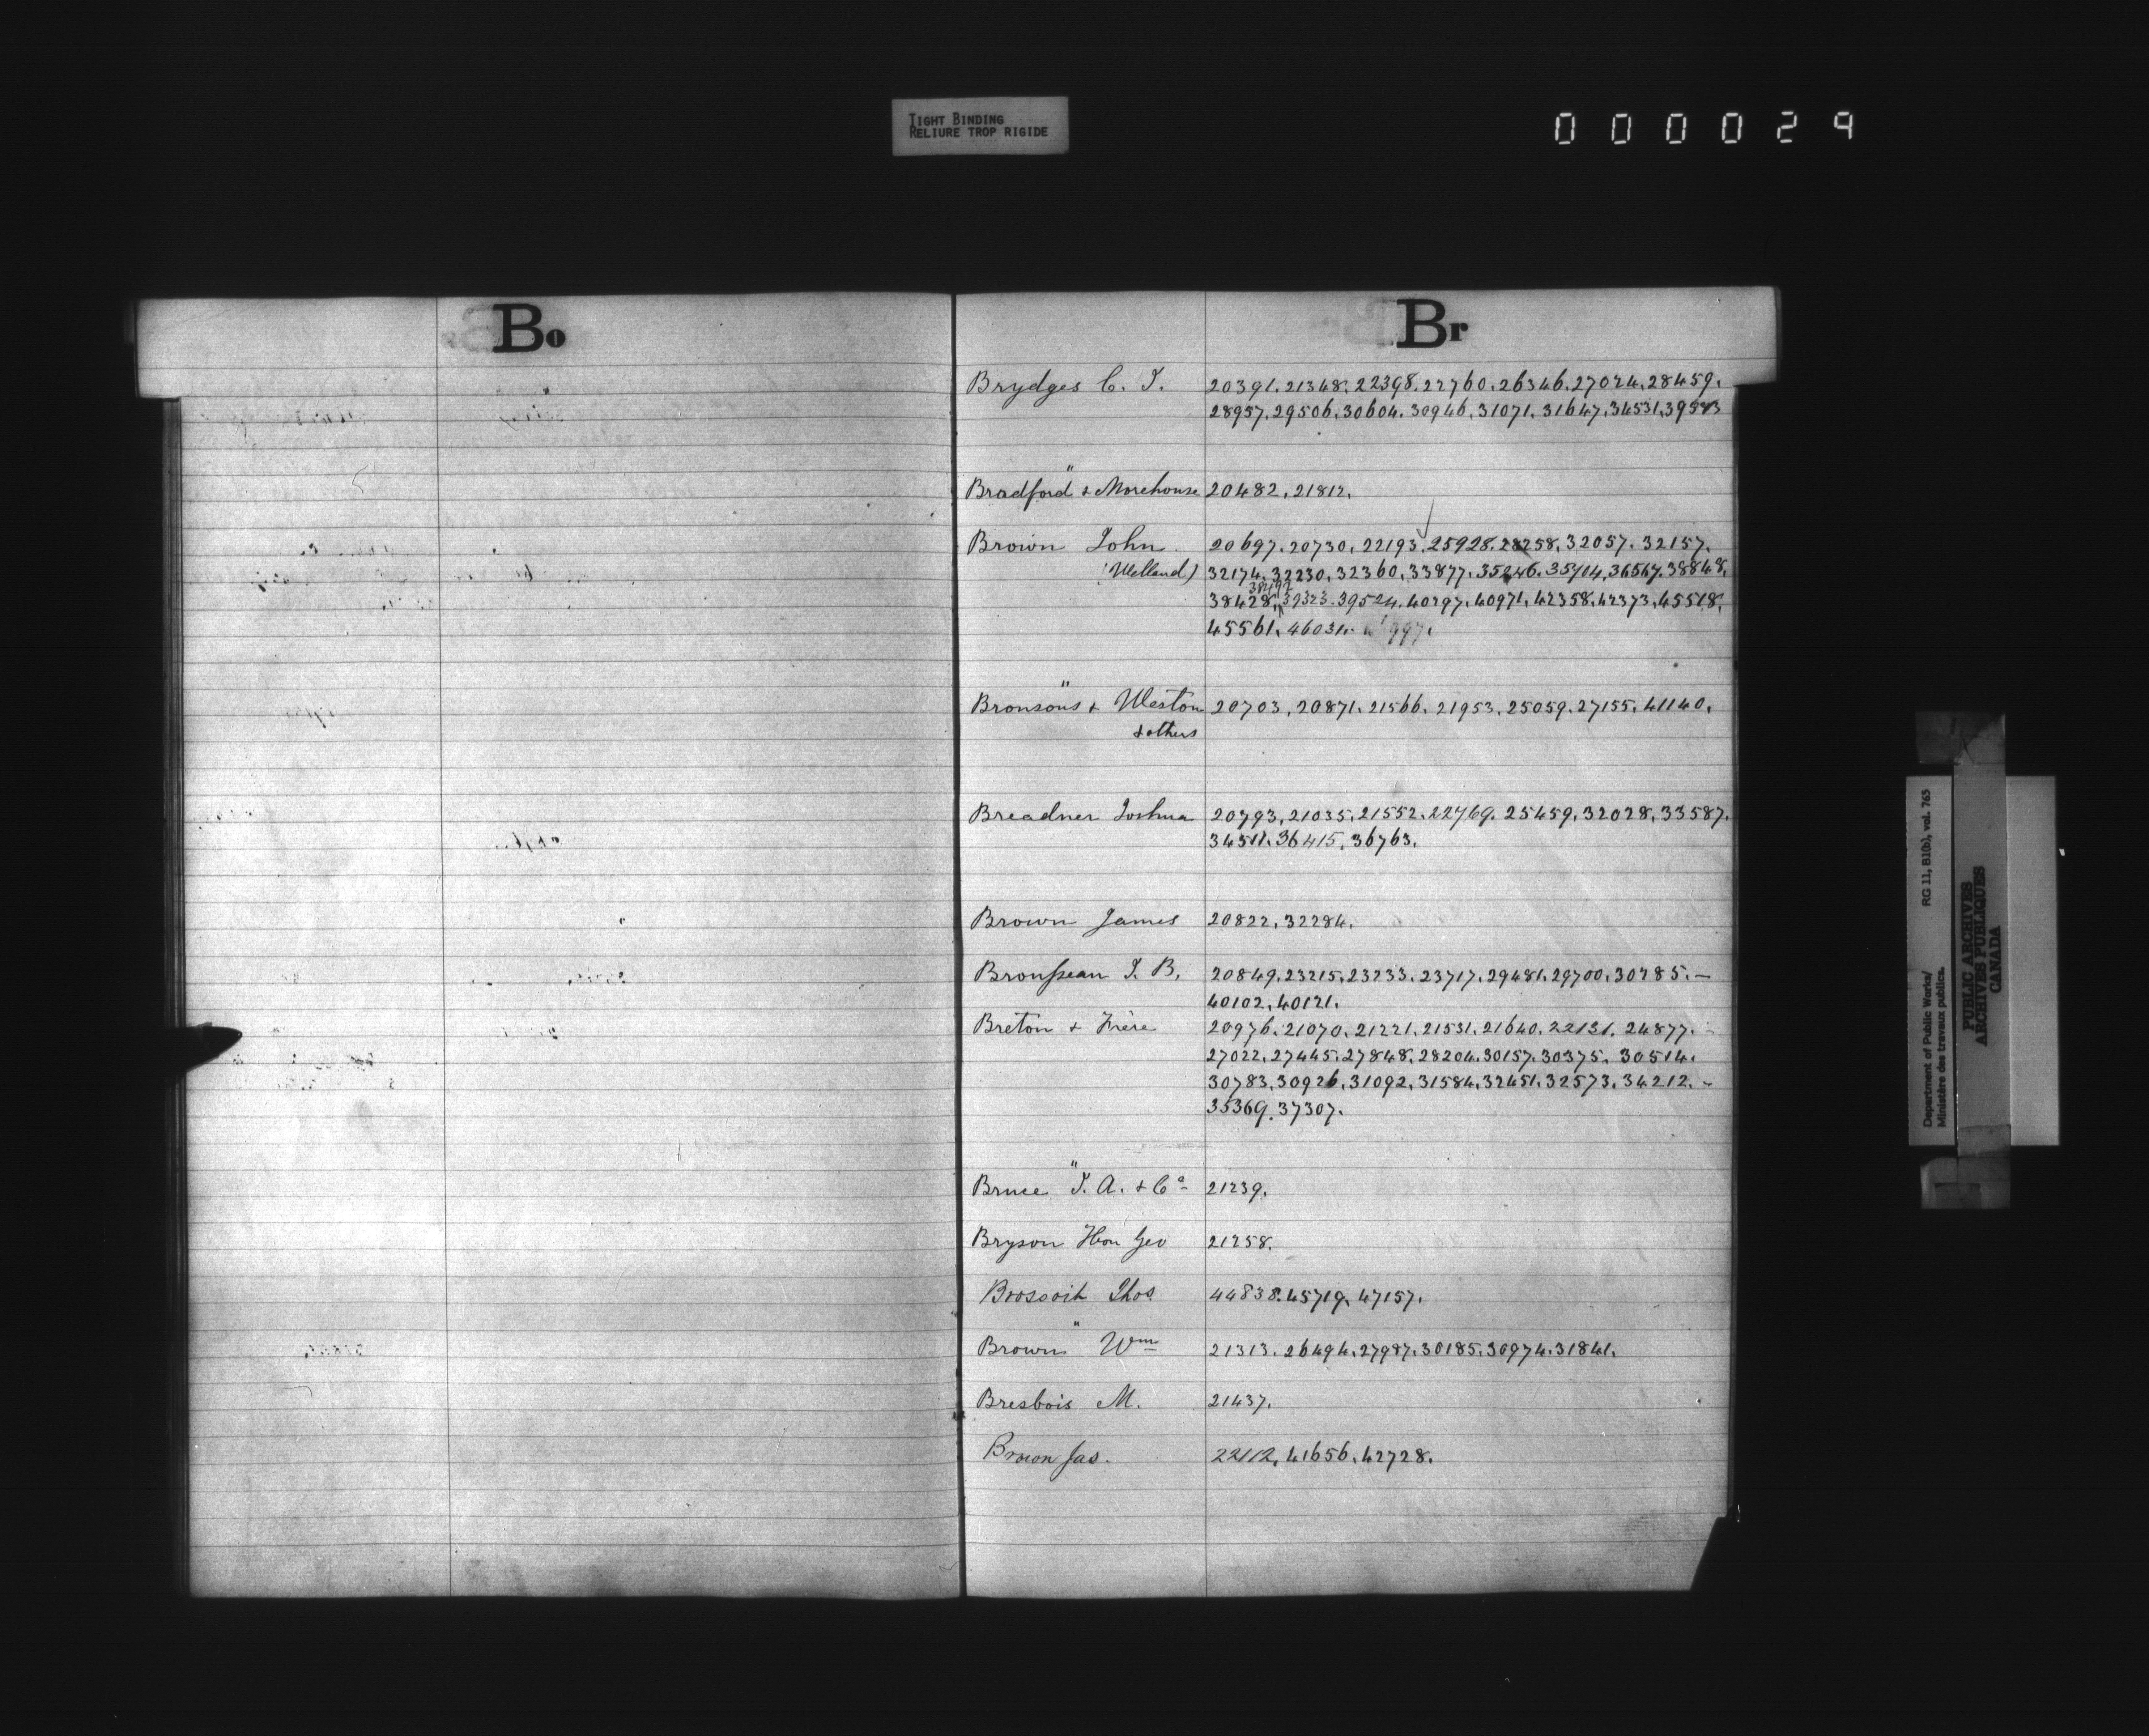 TIGHT BINDING
RELIURE TROP RIGIDE
000029
Bo
Br
Brydges C. J. 20391. 21348. 22398. 22760. 26346. 27024. 28459.
28957. 29506. 30604. 30946. 31071. 31647. 34531. 39573
Bradford " & Morehouse 20482. 21812.
Brown John 20697. 20730. 22193. 25928. 28258. 32057. 32157.
(Welland) 32174. 32230. 32360. 33877. 35246. 35404. 36567. 38848.
38428. 39323. 39524. 40297. 40971. 42358. 42373. 45518.
45561. 46031.
Bronsons " & Weston 20703. 20871. 21566. 21953. 25059. 27155. 41140.
& others
Breadner Joshua 20793. 21035. 21552. 22769. 25459. 32028. 33587.
34511. 36415. 36763.
Brown James 20822. 32284.
Brousseau J. B. 20849. 23215. 23233. 23717. 29481. 29700. 30285. —
40102. 40121.
Breton & Frère 20976. 21070. 21221. 21531. 21640. 22131. 24877. -
27022. 27445. 27848. 28204. 30157. 30375. 30514.
30783. 30926. 31092. 31584. 32451. 32573. 34212. -
35369. 37307.
Bruce " J. A. & Co 21239.
Bryson Hon Geo 21258.
Brossoit Thos 44838. 45719. 47157.
Brown " Wm 21313. 26494. 27987. 30185. 30974. 31841.
Bresbois M. 21437.
Brown Jas. 22112. 41656. 42728.
Department of Public Works/ RG 11, B1(b), vol. 765
Ministère des travaux publics.
PUBLIC ARCHIVES
ARCHIVES PUBLIQUES
CANADA